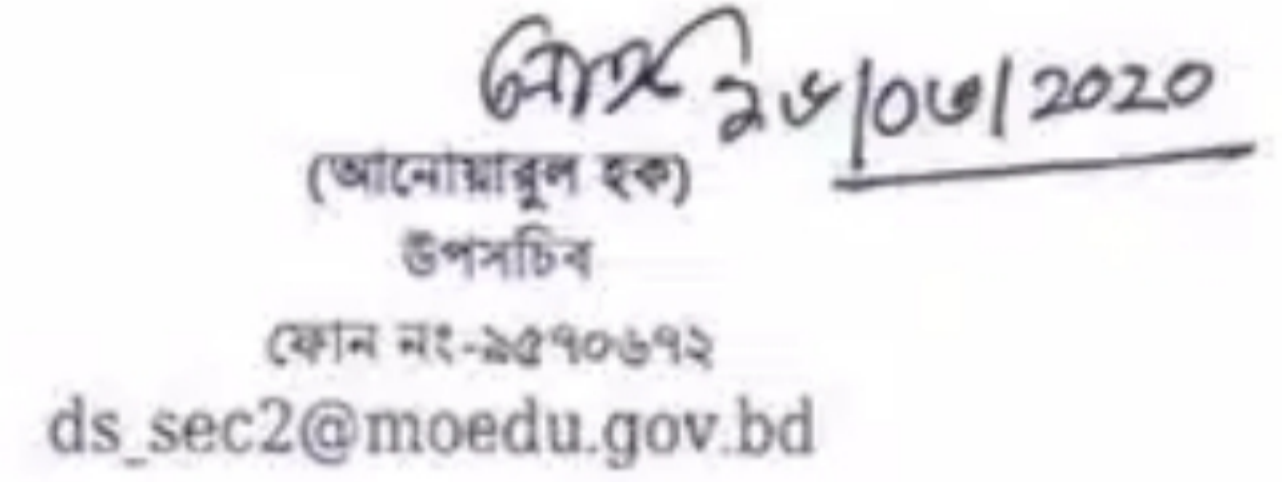 ২৬/০৩/2020
(আনোয়ারুল হক)
উপসচিব
ফোন নং-৯৫৭০৬৭২
ds_sec2@moedu.gov.bd